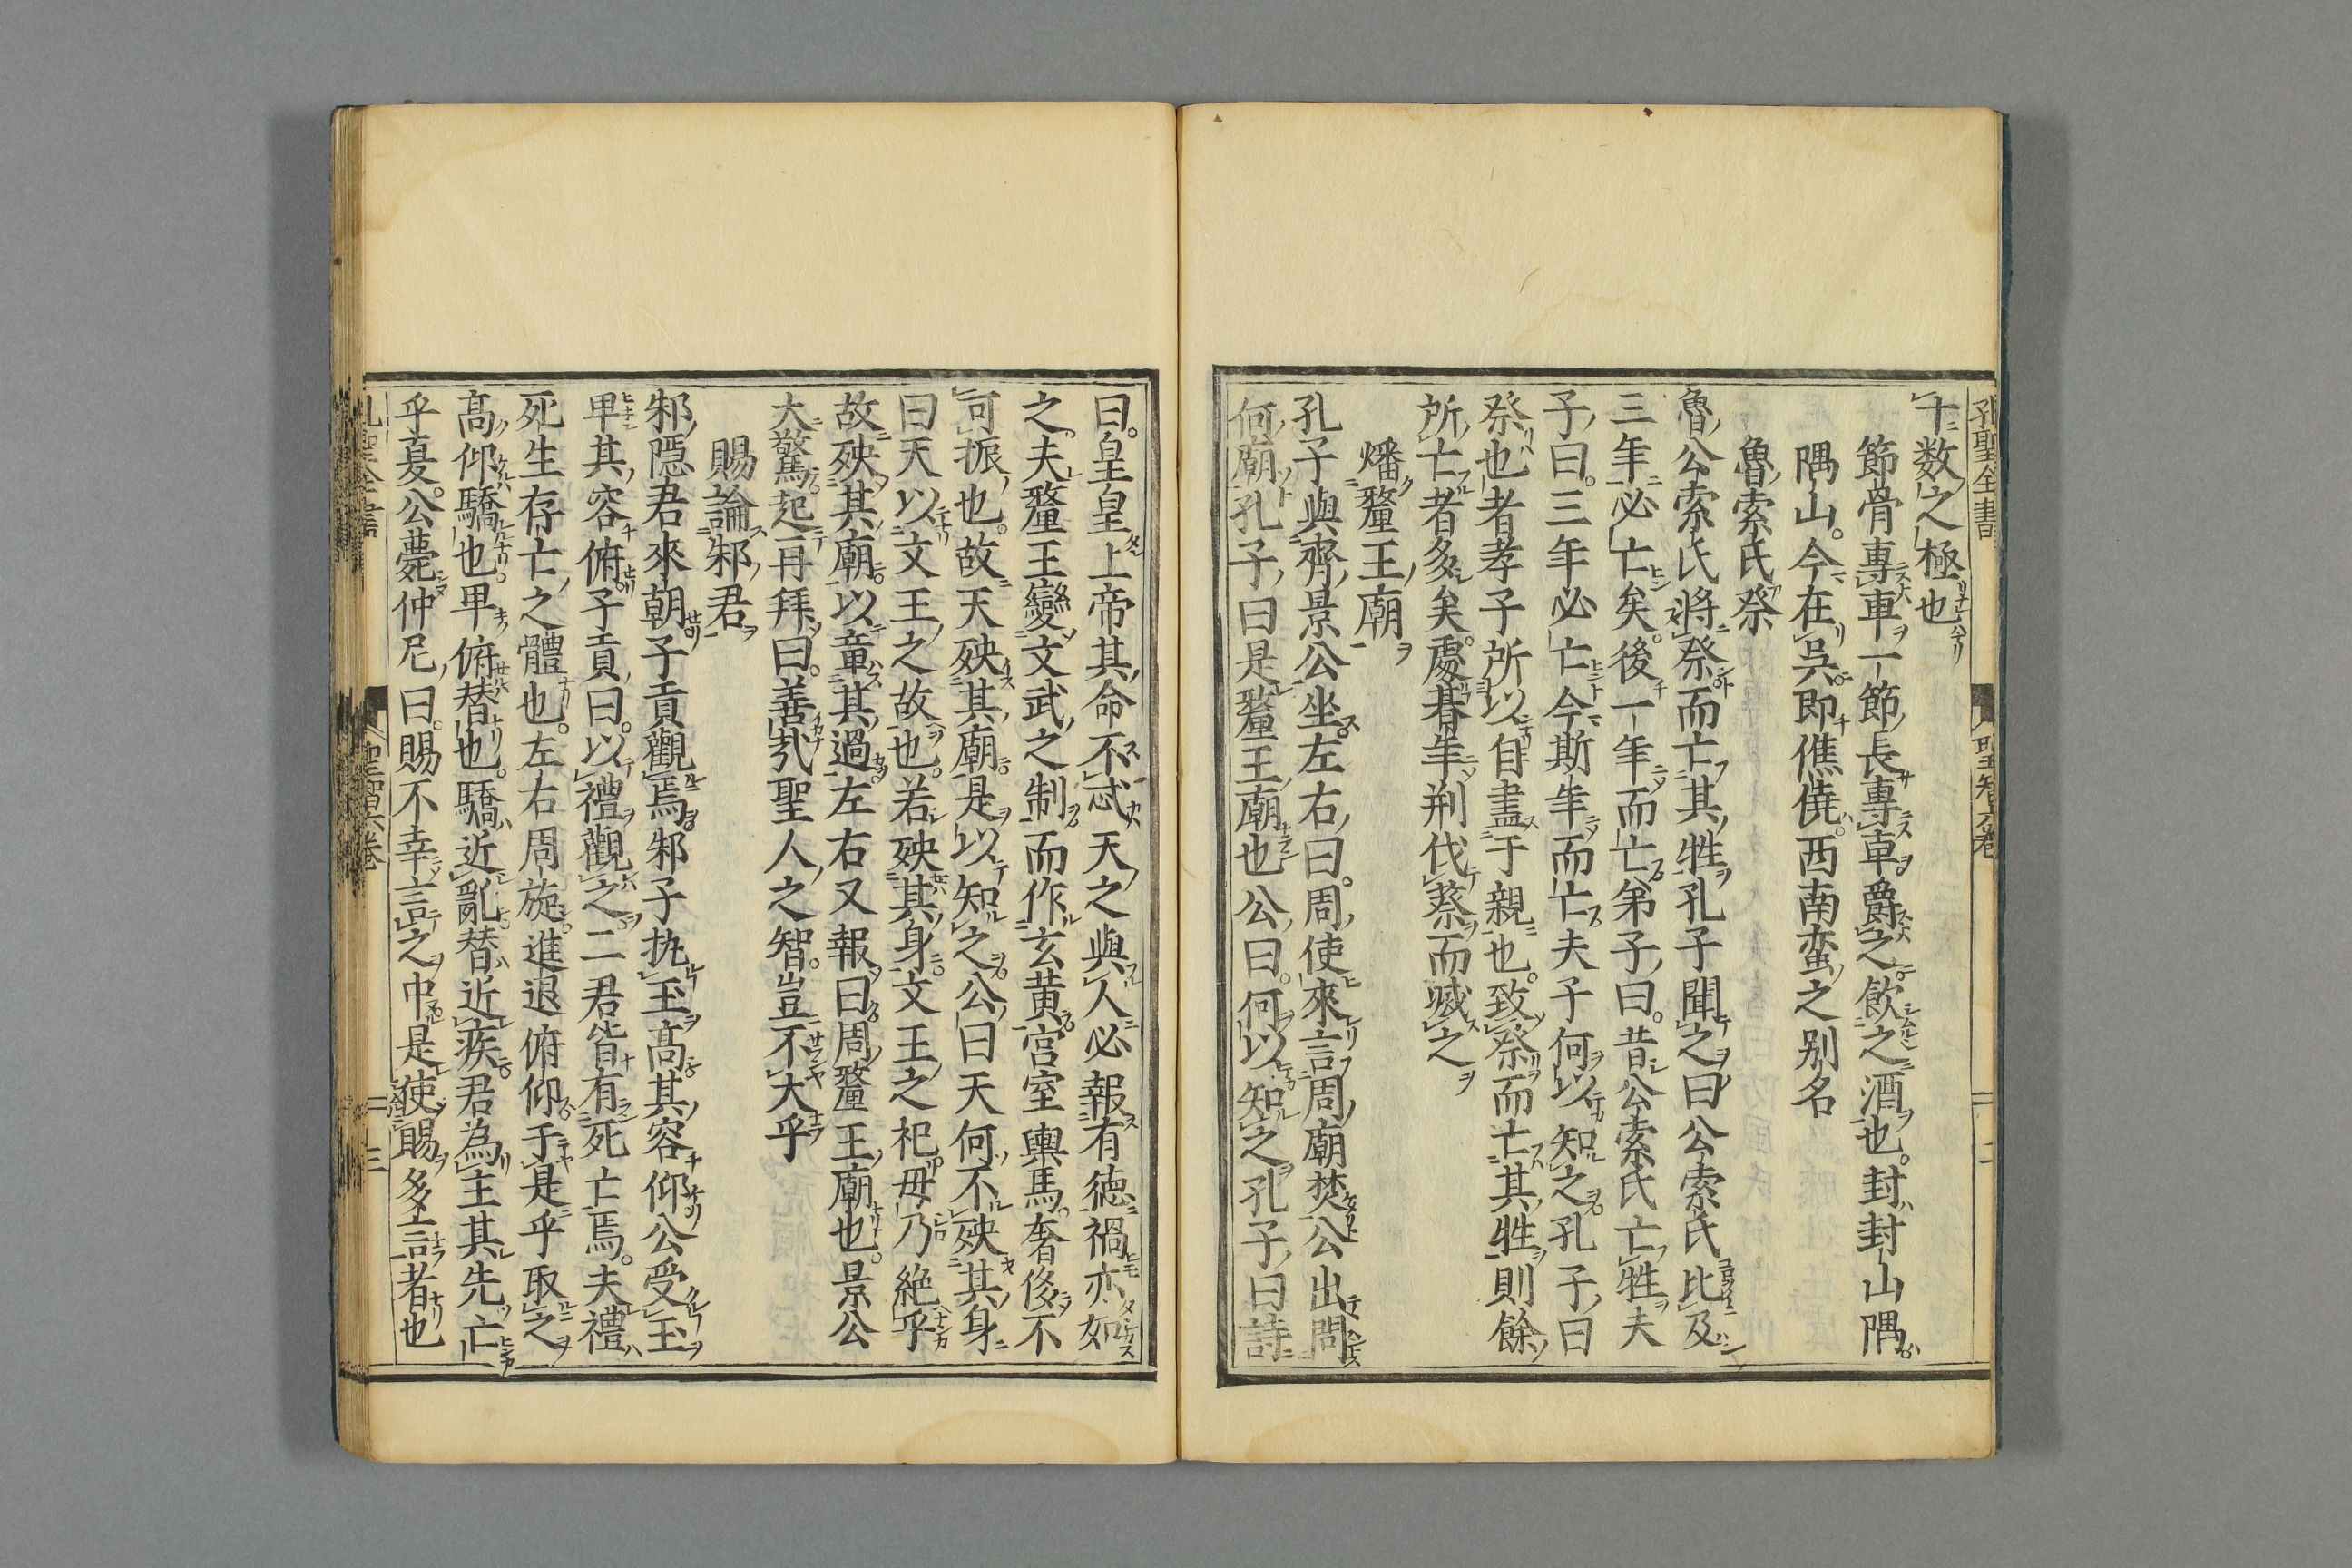 孔聖全書
聖智六卷
十數之極也
節骨專車一節長專車爵之飲之酒也封封山隅
隅山今在吳即僬僥西南蛮之别名
魯索氏祭
魯公索氏將祭而亡其牲孔子聞之曰公索氏比及
三年必亡矣後一年而亡弟子曰昔公索氏亡牲夫
子曰三年必亡今斯年而亡夫子何以知之孔子曰
祭也者孝子所以自盡于親也致祭而亡其牲則餘
所亡者多矣處朞年荆伐蔡而滅之
燔釐王廟
孔子與齊景公坐左右曰周使來言周廟焚公出問
何廟孔子曰是釐王廟也公曰何以知之孔子曰詩
曰皇皇上帝其命不忒天之與人必報有德禍亦如
之夫釐王變文武之制而作玄黄宮室輿馬奢侈不
可振也故天殃其廟是以知之公曰天何不殃其身
曰天以文王之故也若殃其身文王之祀毋乃絶乎
故殃其廟以章其過左右又報曰周釐王廟也景公
大驚起再拜曰善哉聖人之智豈不大乎
賜論邾君
邾隱君來朝子貢觀焉邾子执玉髙其容仰公受玉
卑其容俯子貢曰以禮觀之二君皆有死亡焉夫禮
死生存亡之體也左右周旋進退俯仰于是乎取之
髙仰驕也卑俯替也驕近亂替近疾君為主其先亡
乎夏公薨仲尼曰賜不幸言之中是使賜多言者也
三